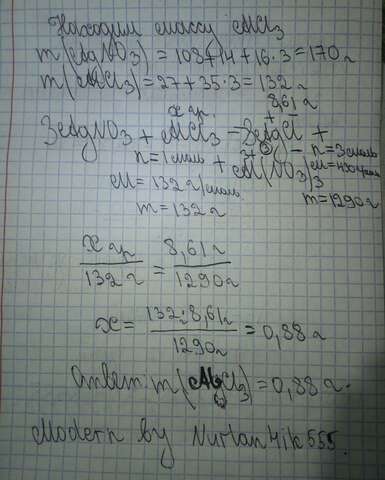 Находим массу AlCl₃
m(AgNO₃)=108+14+16·3=170г
m(AlCl₃)=27+35·3=132г
x гр. 8,61г
3AgNO₃ + AlCl₃ = 3AgCl +
n=1моль + Al(NO₃)₃ n=3моль
M=132г/моль
m=132г m=1290г
x гр / 132г = 8,61г / 1290г
x= 132г·8,61г / 1290г =0,88г
Ответ: m(AlCl₃)=0,88г.
Modern by Nurlan4ik555.